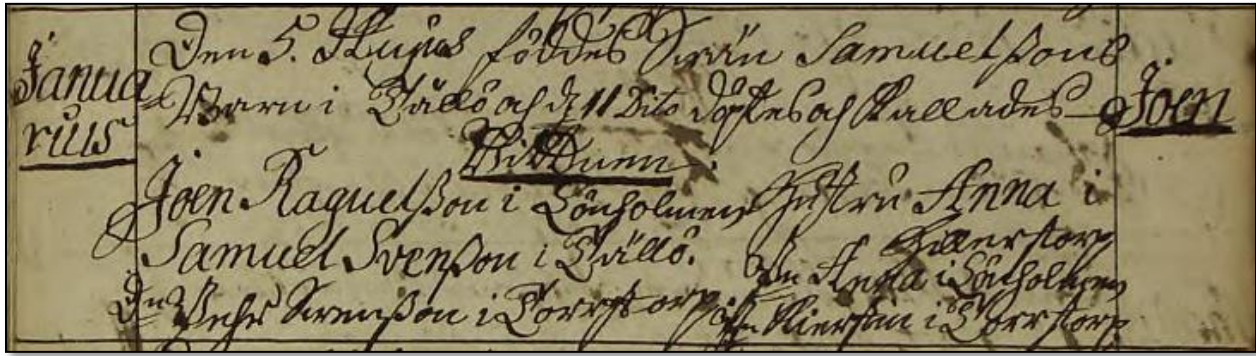 Janua
rius
Den 5. Hujus föddes Swän Samuelssons
Barn i Tällö och d 11 Dito döptes och Kallades
Joen
Wittnen
Joen Raguelsson i Lönholmen Hustru Anna i
Hillerstorp
Samuel Svensson i Tällö. Pn Anna i Lönholmen
Dn Pehr Svensson i Torrstorp Pn Kierstin i Torrstorp